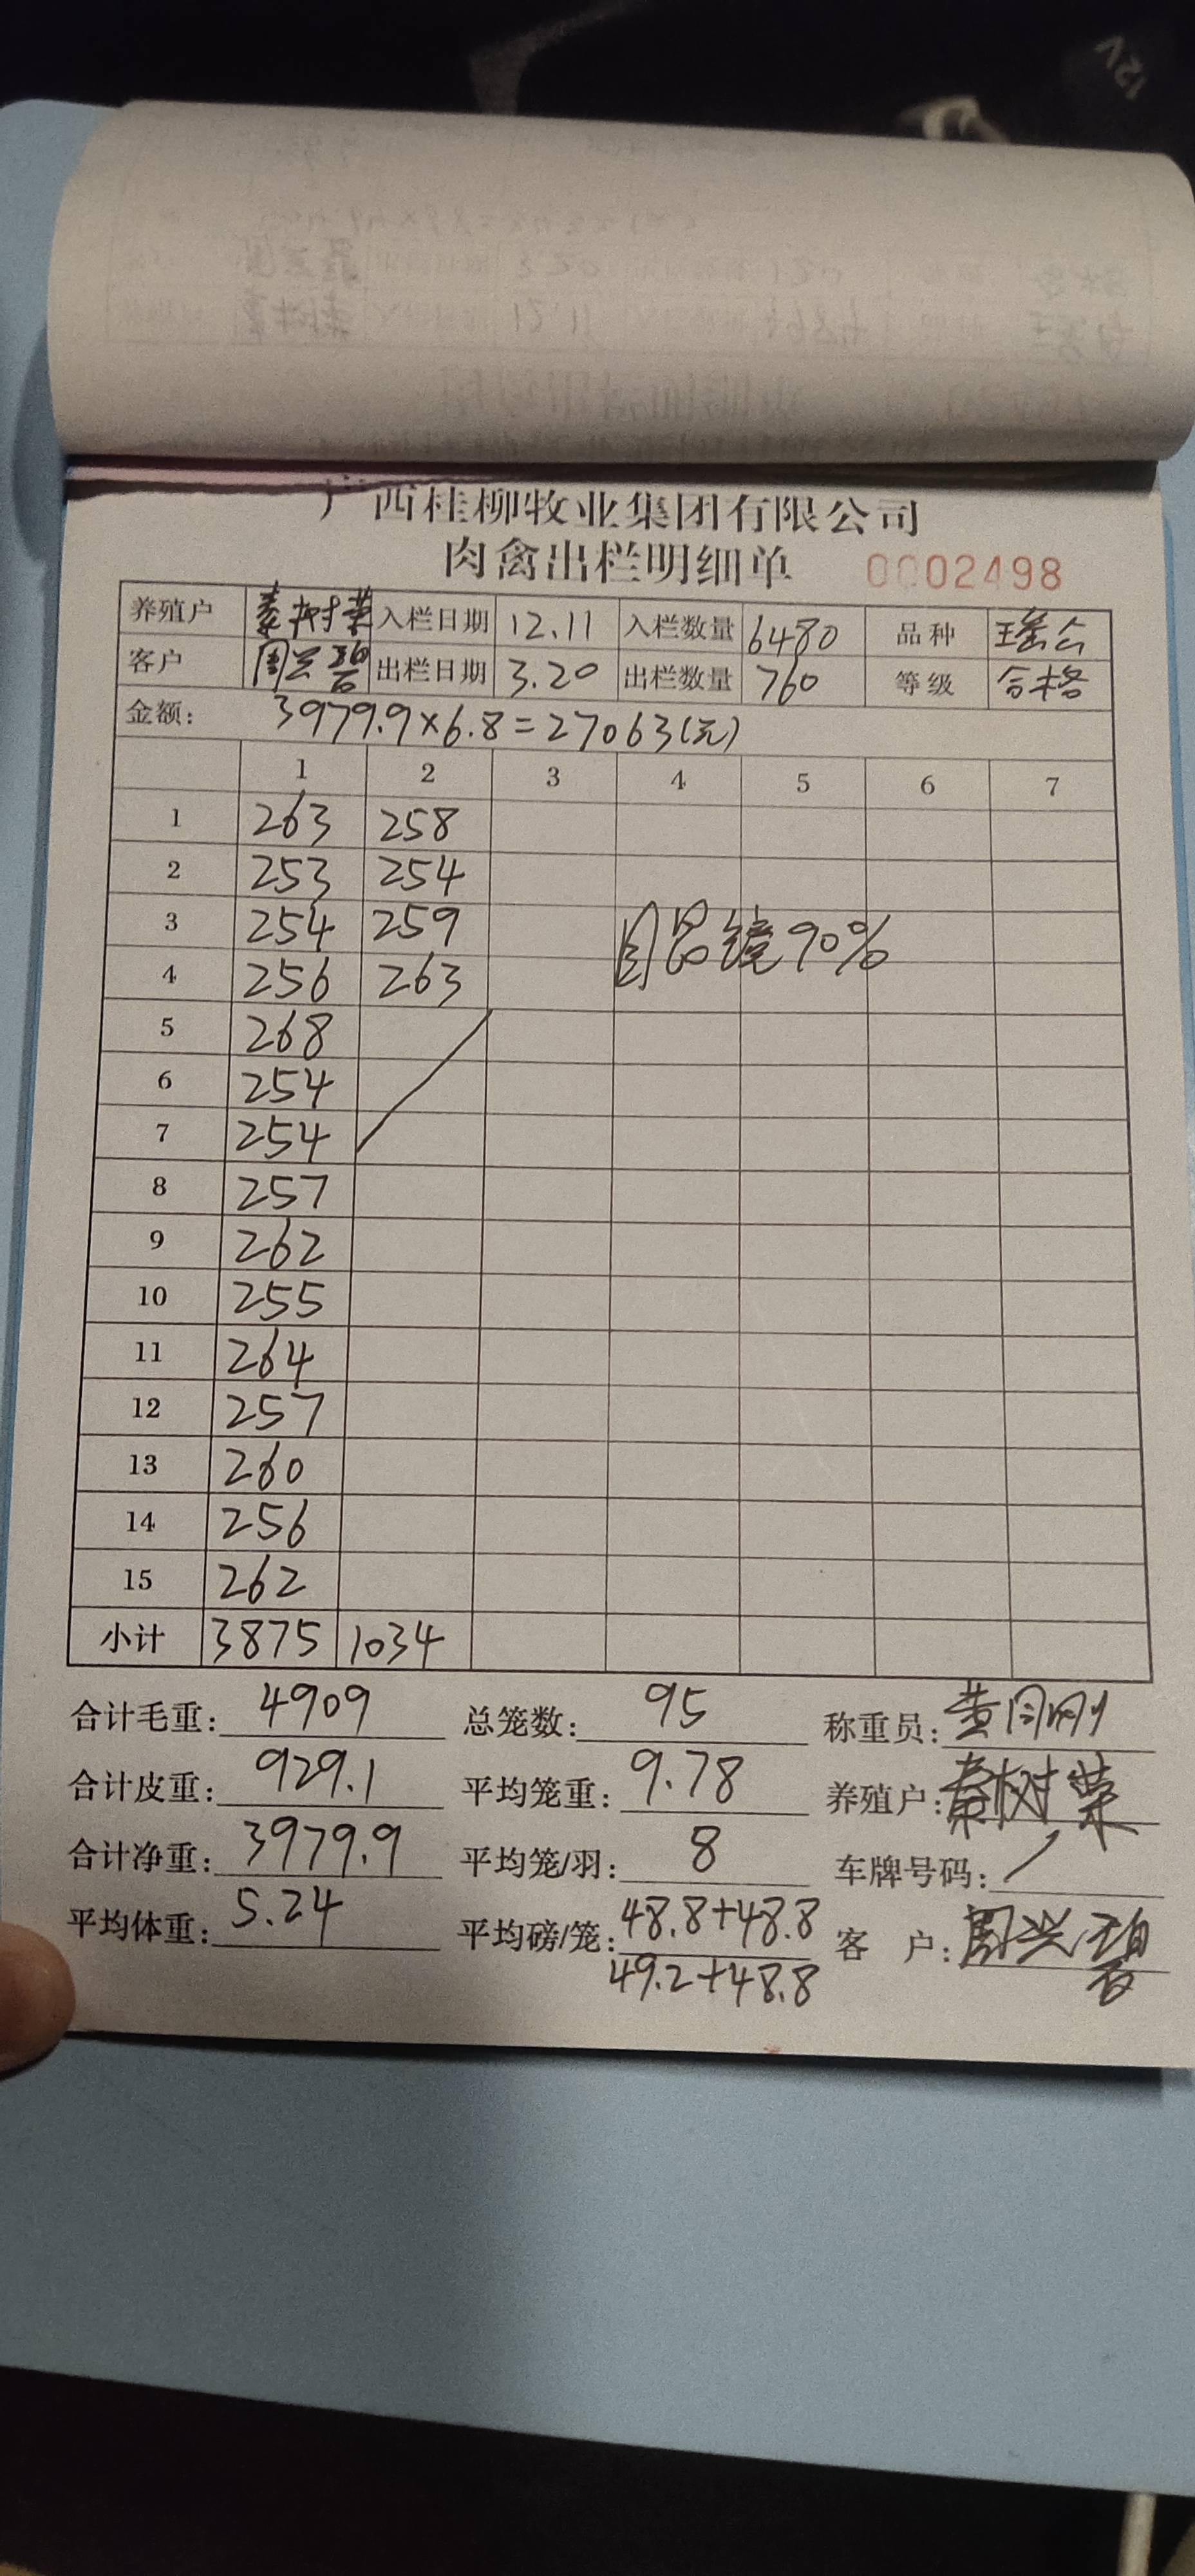 12V
广西桂柳牧业集团有限公司
肉禽出栏明细单 0002498
养殖户 秦树荣 入栏日期 12.11 入栏数量 6480 品种 瑶公
客户 周兴碧 出栏日期 3.20 出栏数量 760 等级 合格
金额: 3979.9×6.8=27063(元)
1 2 3 4 5 6 7
1 263 258
2 253 254
3 254 259 90%
4 256 263
5 268
6 254
7 254
8 257
9 262
10 255
11 264
12 257
13 260
14 256
15 262
小计 3875 1034
合计毛重: 4909 总笼数: 95 称重员: 黄
合计皮重: 929.1 平均笼重: 9.78 养殖户: 秦树荣
合计净重: 3979.9 平均笼/羽: 8 车牌号码: /
平均体重: 5.24 平均磅/笼: 48.8+48.8 客户: 周兴碧
49.2+48.8